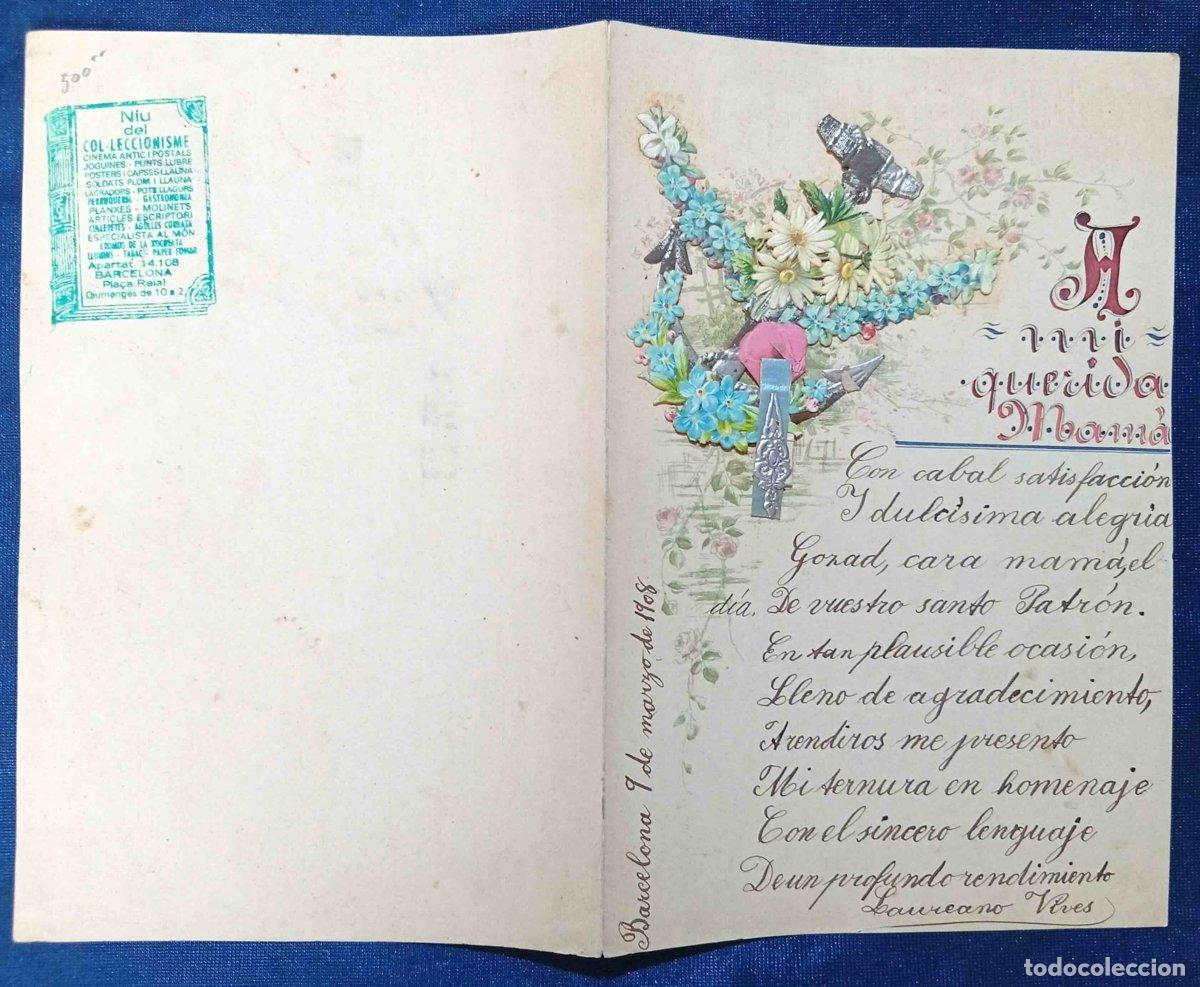 500
Niu
del
COL·LECCIONISME
CINEMA ANTIC I POSTALS
JOGUINES - PUNTS LLIBRE
POSTERS I CAPSES LLAUNA
SOLDATS PLOM I LLAUNA
LACRADORS - POTS LLAGURS
PERRUQUERIA - GASTRONOMIA
PLANXES - MOLINETS
ARTICLES ESCRIPTORI
ESPECIALISTA AL MÓN
CROMOS DE LA XOCOLATA
TABAC - PAPER FUMAR
Apartat 14.108
BARCELONA
Plaça Reial
Diumenges de 10 a 2
A
mi
querida
Mamá
Con cabal satisfacción
I dulcísima alegría
Gozad, cara mamá, el
día. De vuestro santo Patrón.
En tan plausible ocasión,
Lleno de agradecimiento,
A rendiros me presento
Mi ternura en homenaje
Con el sincero lenguaje
De un profundo rendimiento
Laureano Vives
Barcelona 9 de marzo de 1908
todocoleccion